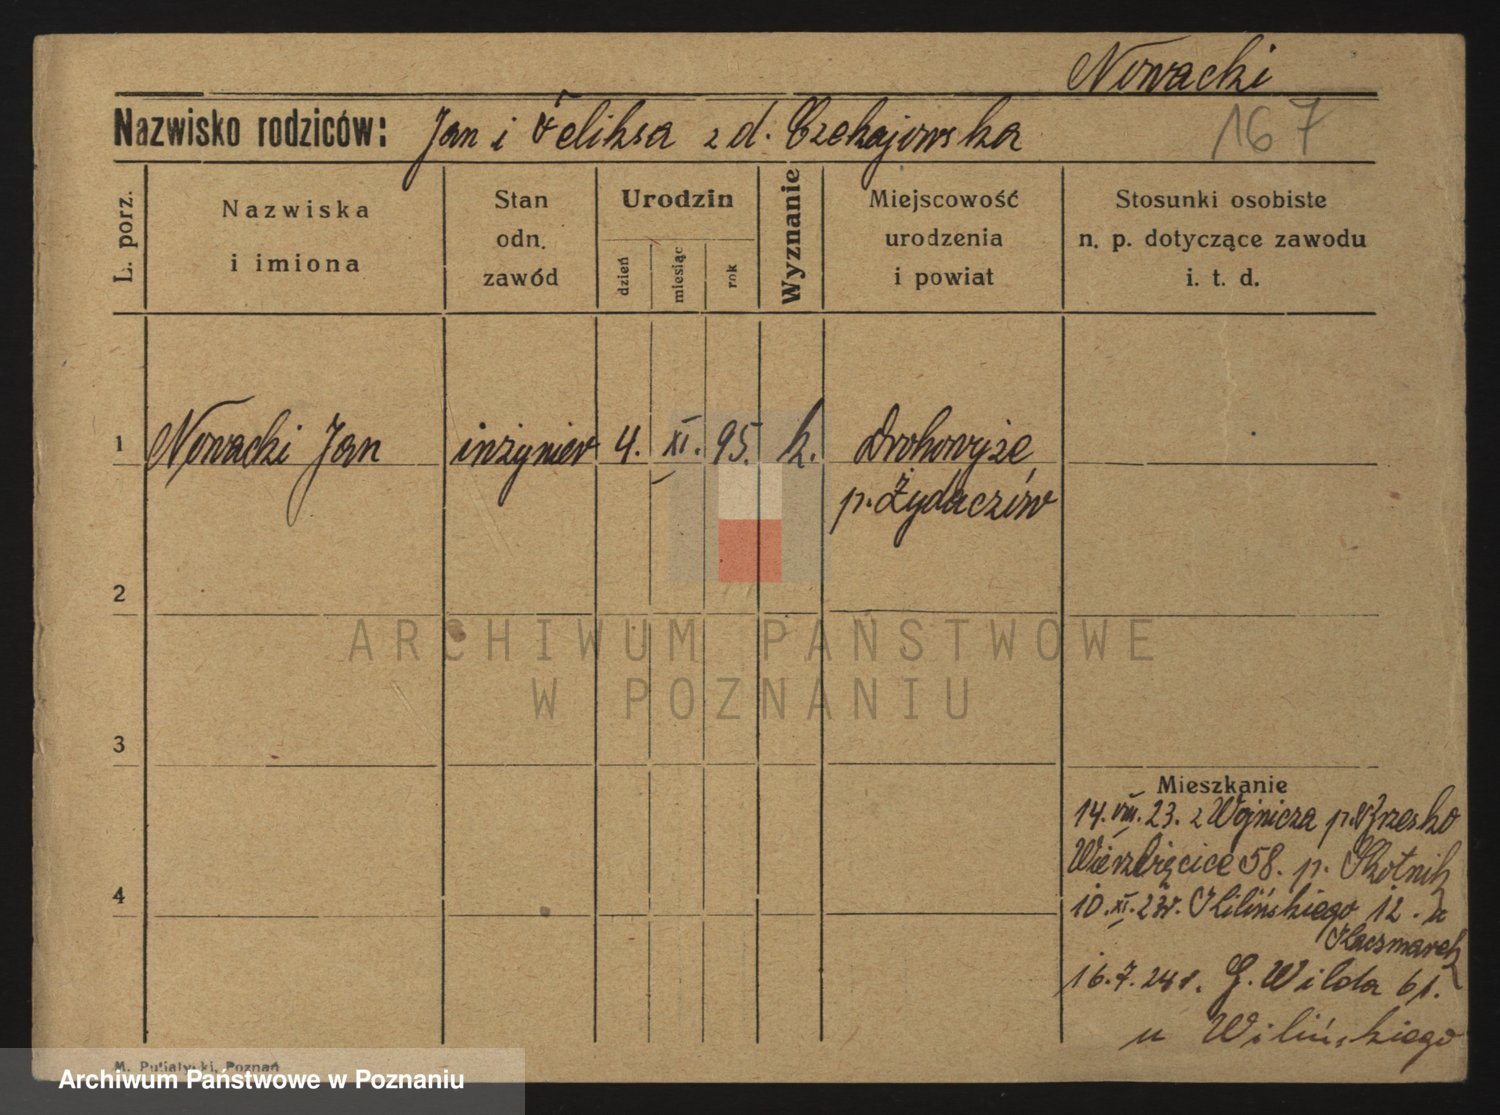 Nowacki
Nazwisko rodziców: Jan i Feliksa z d. Czekajowska
167
L. porz.
Nazwiska
i imiona
Stan
odn.
zawód
Urodzin
dzień
miesiąc
rok
Wyznanie
Miejscowość
urodzenia
i powiat
Stosunki osobiste
n. p. dotyczące zawodu
i. t. d.
1 Nowacki Jan inżynier 4. XI. 95. k. Drohowyże
p. Żydaczów
2
ARCHIWUM PAŃSTWOWE
W POZNANIU
3
Mieszkanie
14. VIII. 23. z Wojnicza p. Brzesko
Wierzbięcice 58. p. Skotnik
4
10. XI. 23r. Kilińskiego 12. u
Kaczmarek
16.7.24r. G. Wilda 61.
u Wilińskiego
M. Putiatycki, Poznań
Archiwum Państwowe w Poznaniu